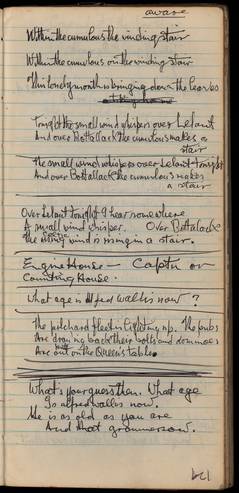 aware
Within the cumulous the winding stair
Within the cumulous on the winding stair
This lonely month is bringing down the leaves
Tonight the small wind whispers over Lelant
And over Bottallack the cumulous makes a
stair
The small wind whispers over Lelant tonight
And over Bottallack the cumulous makes
a stair
Over Lelant tonight I hear somewhere
A small wind whisper. Over Bottallack
The rising wind is rising in a stair.
Engine House — Captn or
Counting House.
What age is Alfred Wallis now?
The pilchard fleet is lighting up. The pubs
Are drawing back their bolts and dominoes
Are out on the Queen's table.
What's your guess then. What age
Is Alfred Wallis now.
He is as old as you are
And that grammersow.
127